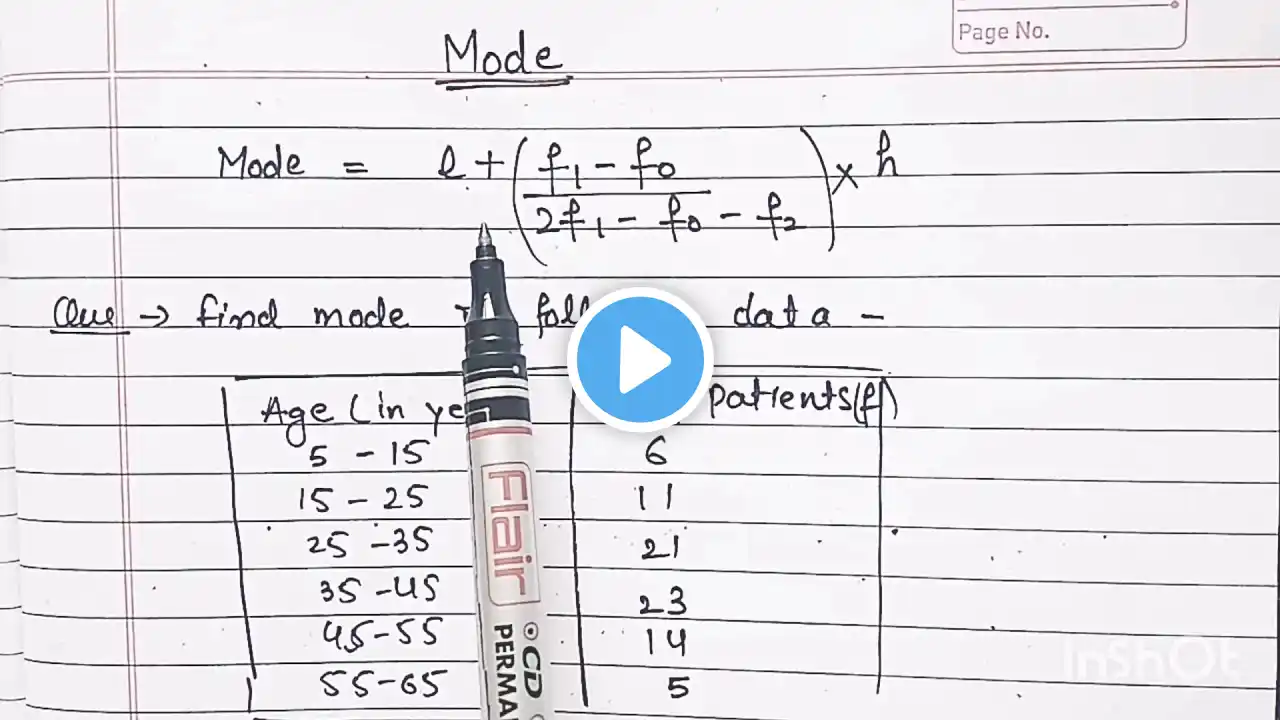 Page No.
Mode
Mode = l + ( f₁ - f₀ / 2f₁ - f₀ - f₂ ) × h
Que → find mode data -
Age (in patients(f)
5 - 15 6
15 - 25 11
25 - 35 21
35 - 45 23
45 - 55 14
55 - 65 5
Flair
CD
InShOt